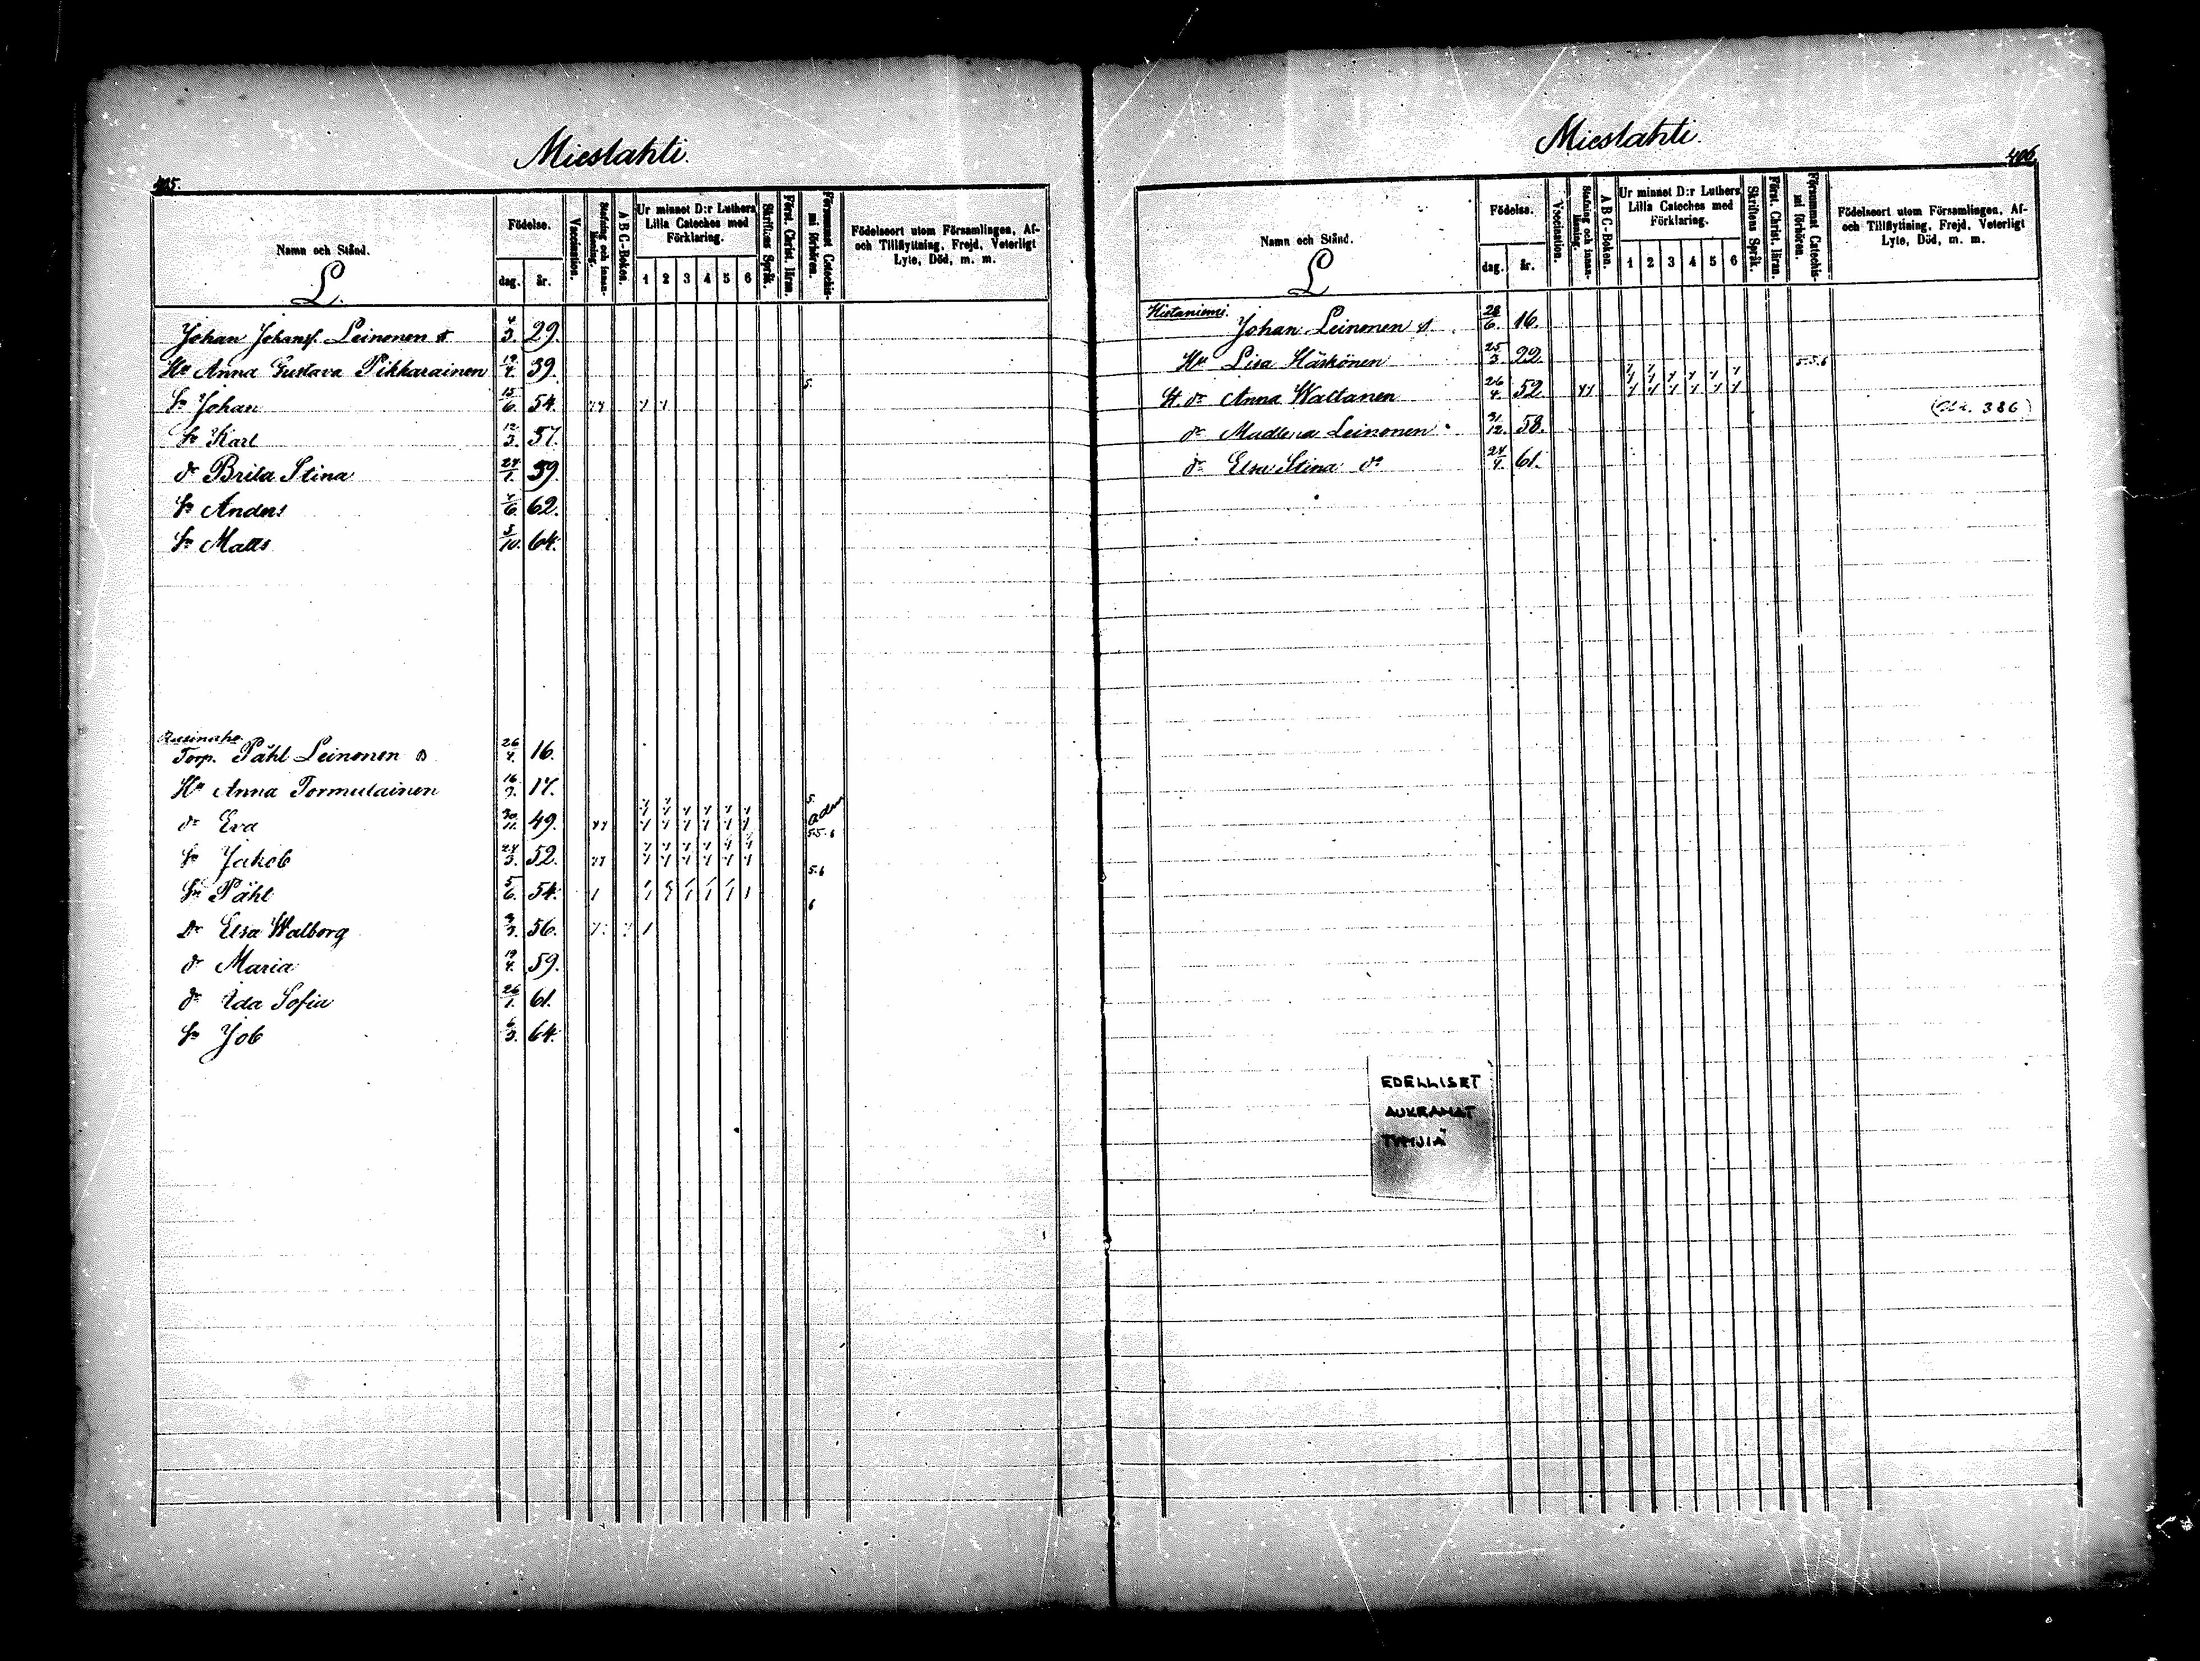 Mieslahti.
405.
Namn och Stånd.
L.
Födelse.
dag. år.
Vaccination.
Stafning och innanläsning.
A B C-Boken.
Ur minnet D:r Luthers Lilla Cateches med Förklaring.
1 2 3 4 5 6
Skriftens Språk.
Först. Christ. läran.
Försummat Catechismi förhören.
Födelseort utom Församlingen, Af- och Tillflyttning, Frejd, Veterligt Lyte, Död, m. m.
Johan Johanss. Leinonen 4/3. 29.
Hu Anna Gustava Pikkarainen 39.
Sn Johan 15/6. 54. 5.
Sn Karl 12/3. 57.
dr Brita Stina 59.
Sn Anders 62.
Sn Matts 5/10. 64.
Torp. Påhl Leinonen 26/4. 16.
Hu Anna Tormulainen 17.
dr Eva 30/11. 49. 5.
Sn Jakob 24/3. 52. 5.5.6
Sn Påhl 5/6. 54. 5.6
Dr Elsa Walborg 56. 6
dr Maria 19/4. 59.
dr Ida Sofia 26/1. 61.
Sn Job 6/3. 64.
Mieslahti.
406.
Namn och Stånd.
L
Födelse.
dag. år.
Vaccination.
Stafning och innanläsning.
A B C-Boken.
Ur minnet D:r Luthers Lilla Cateches med Förklaring.
1 2 3 4 5 6
Skriftens Språk.
Först. Christ. läran.
Försummat Catechismi förhören.
Födelseort utom Församlingen, Af- och Tillflyttning, Frejd, Veterligt Lyte, Död, m. m.
Johan Leinonen 28/6. 16.
Hu Lisa Härkönen 25/3. 22. 5.5.6
St. dr Anna Waltanen 26/4. 52.
386
dr Madlena Leinonen 31/12. 58.
dr Elsa Stina do 24/4. 61.
EDELLISET
AUKEAMAT
TYHJIÄ